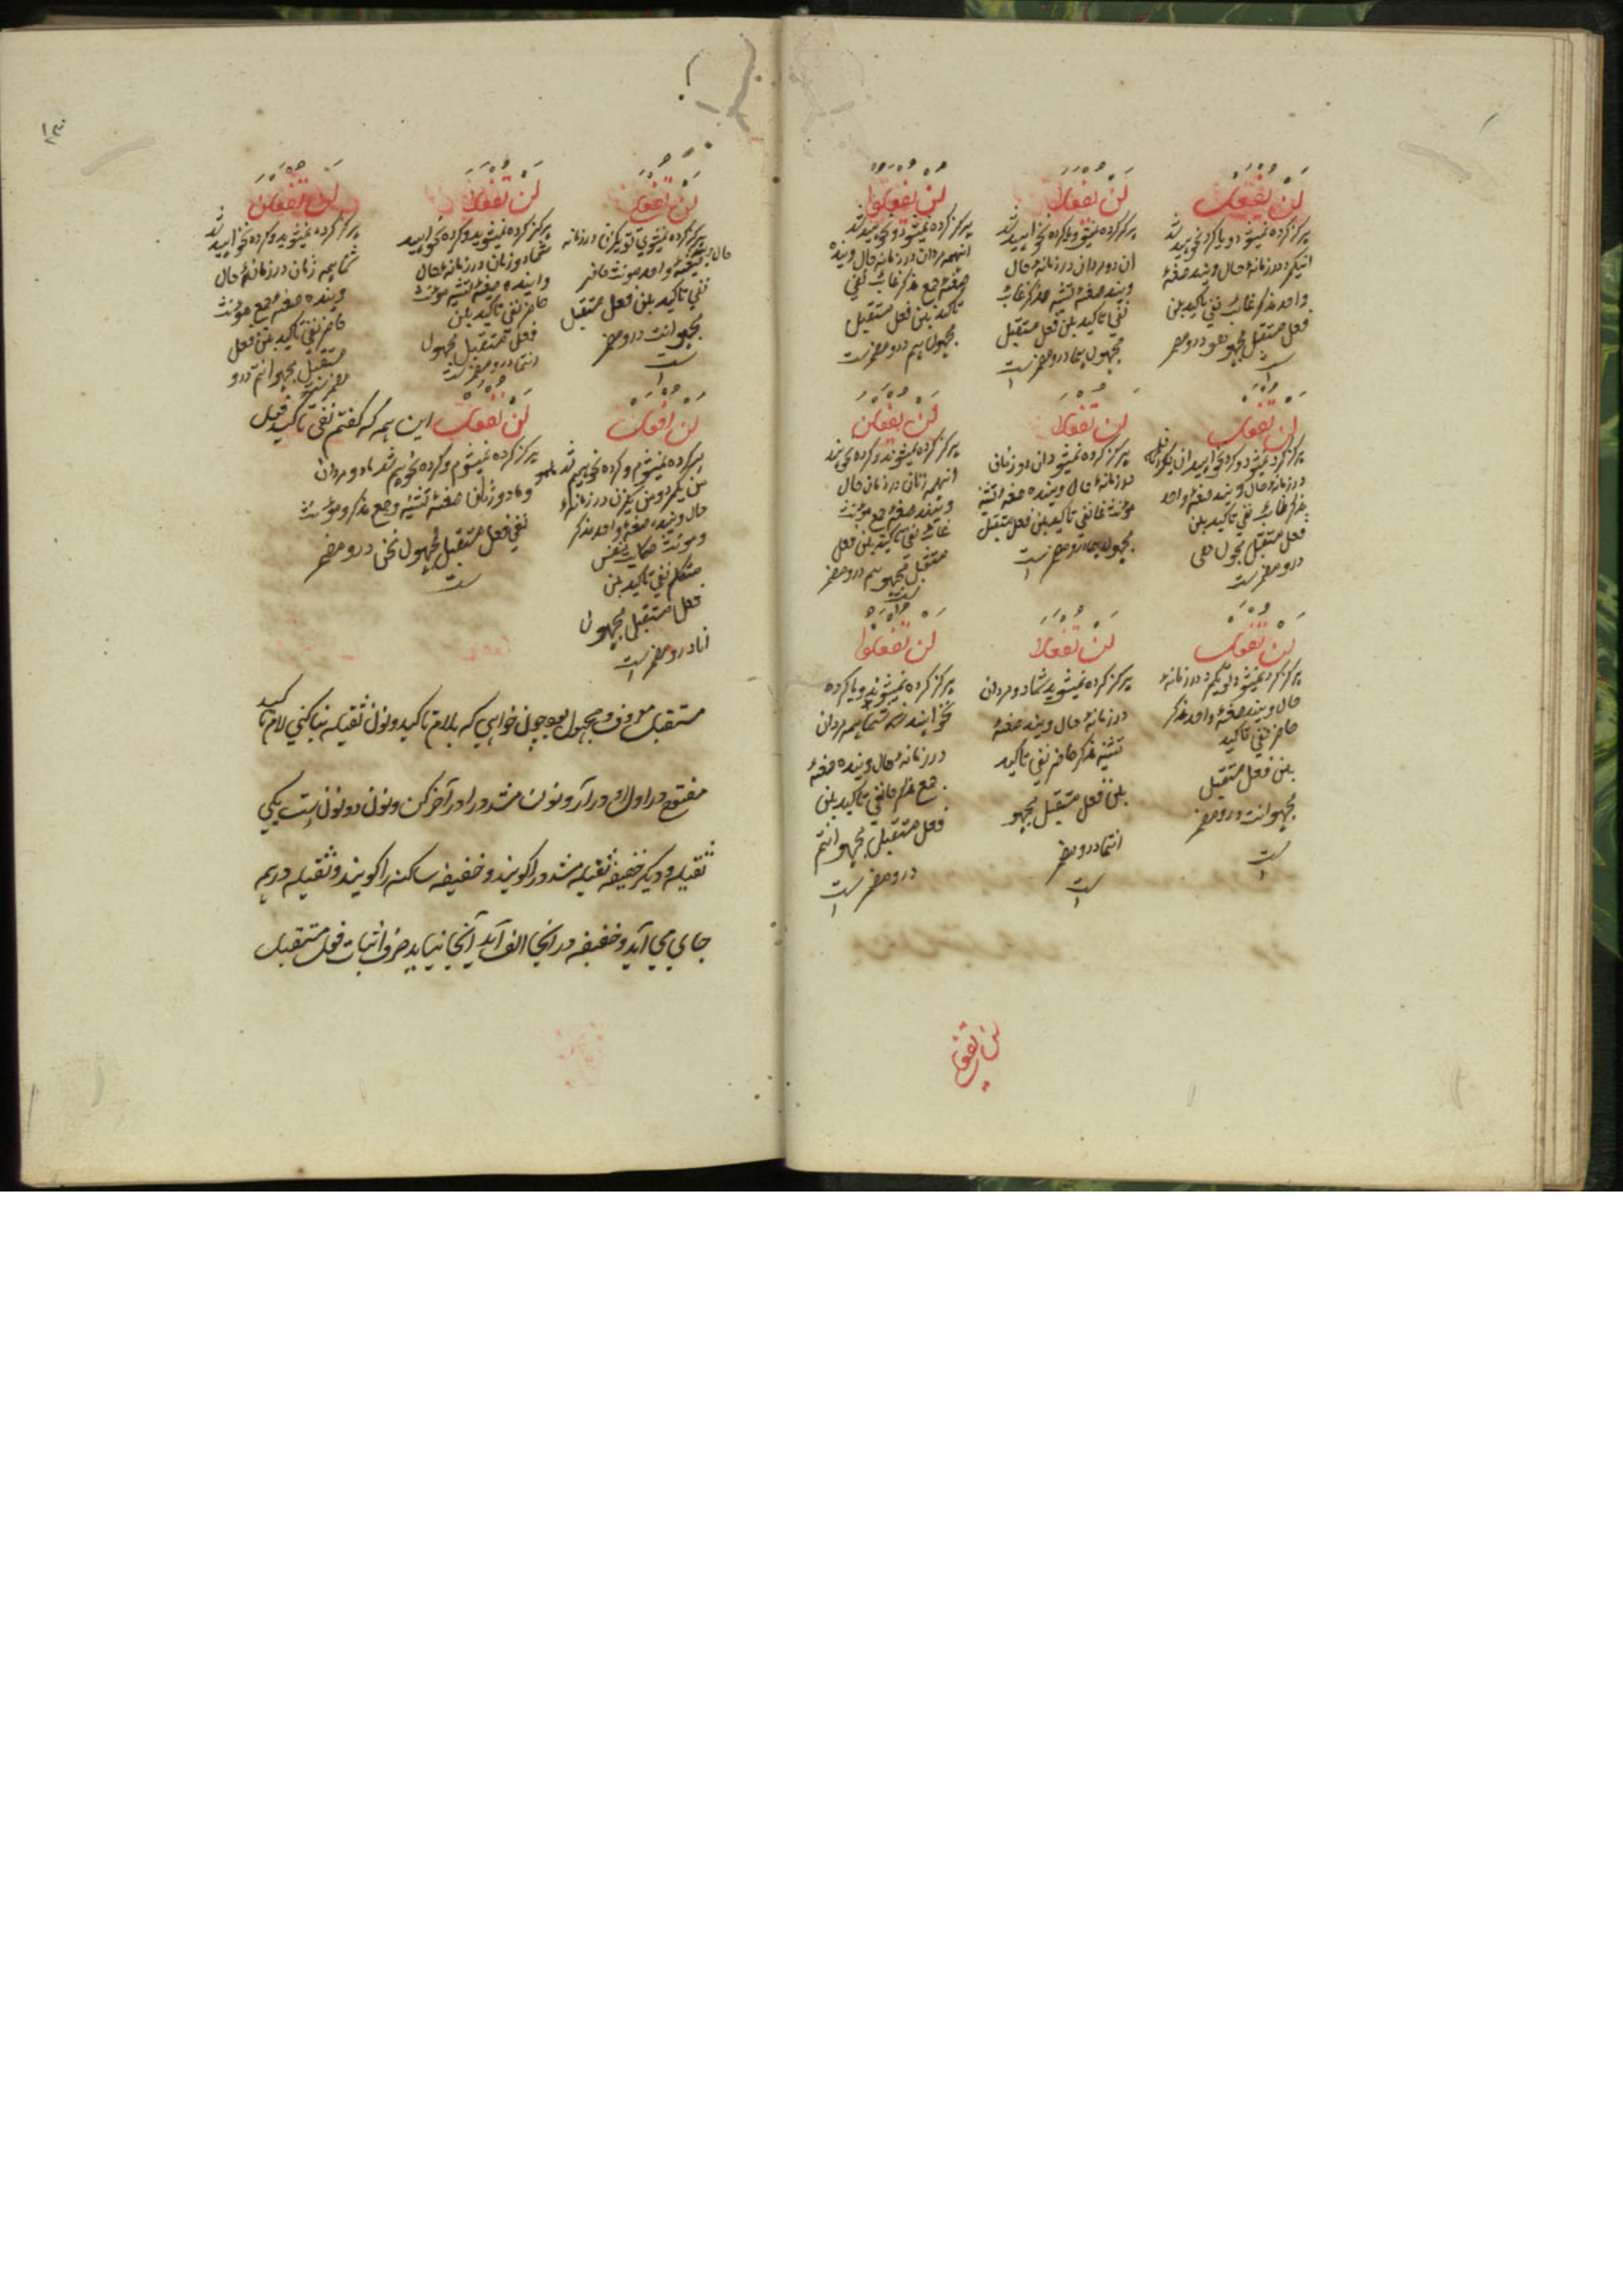 لَنْ يُفْعَلَ
هرگز کرده نمیشود و یا کرده نخواهد شد
آن یکمرد در زمانهٔ حال و آینده صیغهٔ
واحد مذکر غائب نفی تاکید بلن
فعل مستقبل مجهول هو درو مضمر
است
لَنْ يُفْعَلَا
هرگز کرده نمیشود و یا کرده نخواهند شد
آن دو مردان در زمانهٔ حال
و آینده صیغهٔ تثنیه مذکر غائب
نفی تاکید بلن فعل مستقبل
مجهول هما درو مضمر است
لَنْ يُفْعَلُوا
هرگز کرده نمیشوند و نخواهند شد
آنهمه مردان در زمانهٔ حال و آینده
صیغهٔ جمع مذکر غائب نفی
تاکید بلن فعل مستقبل
مجهول هم درو مضمر است
لَنْ تُفْعَلَ
در زمانهٔ حال و آینده صیغهٔ واحد
غائب نفی تاکید بلن
فعل مستقبل مجهول هی
درو مضمر است
لَنْ تُفْعَلَا
هرگز کرده نمیشود آن دو زنان
در زمانهٔ حال و آینده صیغهٔ تثنیه
مؤنث غائب نفی تاکید بلن فعل مستقبل
مجهول هما درو مضمر است
لَنْ يُفْعَلْنَ
هرگز کرده نمیشوند و کرده نخواهند
آنهمه زنان در زمان حال
و آینده صیغهٔ جمع مؤنث
غائب نفی تاکید بلن فعل
مستقبل مجهول هم درو مضمر
است
لَنْ تُفْعَلَ
هرگز کرده نمیشود تو یکمرد در زمانهٔ
حال و آینده صیغهٔ واحد مذکر
حاضر نفی تاکید
بلن فعل مستقبل
مجهو انت درو مضمر
است
لَنْ تُفْعَلَا
هرگز کرده نمیشوید شما دو مردان
در زمانهٔ حال و آینده صیغهٔ
تثنیه مذکر حاضر نفی تاکید
بلن فعل مستقبل مجهو
انتما درو مضمر
است
لَنْ تُفْعَلُوا
هرگز کرده نمیشوند و یا کرده
نخواهند شد شما همه مردان
در زمانهٔ حال و آینده صیغهٔ
جمع مذکر حا نفی تاکید بلن
فعل مستقبل مجهو انتم
درو مضمر است
لن تفعلی
لَنْ تُفْعَلِي
هرگز کرده نمیشوی تو یکزن در زمانه
صیغهٔ واحد مؤنث حاضر
نفی تاکید بلن فعل مستقبل
مجهو انت درو مضمر
است
لَنْ تُفْعَلَا
هرگز کرده نمیشوید و کرده نخواهید
شما دو زنان در زمانهٔ حال
و آینده صیغهٔ تثنیه مؤنث
حاضر نفی تاکید بلن
فعل مستقبل مجهول
انتما درو مضمر است
لَنْ تُفْعَلْنَ
هرگز کرده نمیشوید و کرده نخواهید شد
شما همه زنان در زمانهٔ حال
و آینده صیغهٔ جمع مؤنث
حاضر نفی تاکید بلن فعل
مستقبل مجهو انتم درو
مضمر است
لَنْ اُفْعَلَ
هرگز کرده نمیشوم و کرده نخواهم شد
من یکمرد و من یکزن در زمانهٔ
حال و آینده صیغهٔ واحد مذکر
و مؤنث حکایت نفس
متکلم نفی تاکید بلن
فعل مستقبل مجهول
انا درو مضمر است
لَنْ نُفْعَلَ این همه که گفتم نفی تاکید فعل
هرگز کرده نمیشوم و کرده نخواهیم شد ما دو مردان
و ما دو زنان صیغهٔ تثنیه و جمع مذکر و مؤنث
نفی فعل مستقبل مجهول نحن درو مضمر
است
مستقبل معروف و مجهول بود چون خواهی که بلام تاکید و نون ثقیله بنا کنی لام تاکید
مفتوح در اول او در آر و نون مشدد را در آخر کن و نون دو نون است یکی
ثقیله و دیگر خفیفه ثقیله مشدد را گویند و خفیفه ساکنه را گویند و ثقیله در همه
جای می آید و خفیفه در آنجا الف آید آنجا نیاید صرف اثبات فعل مستقبل